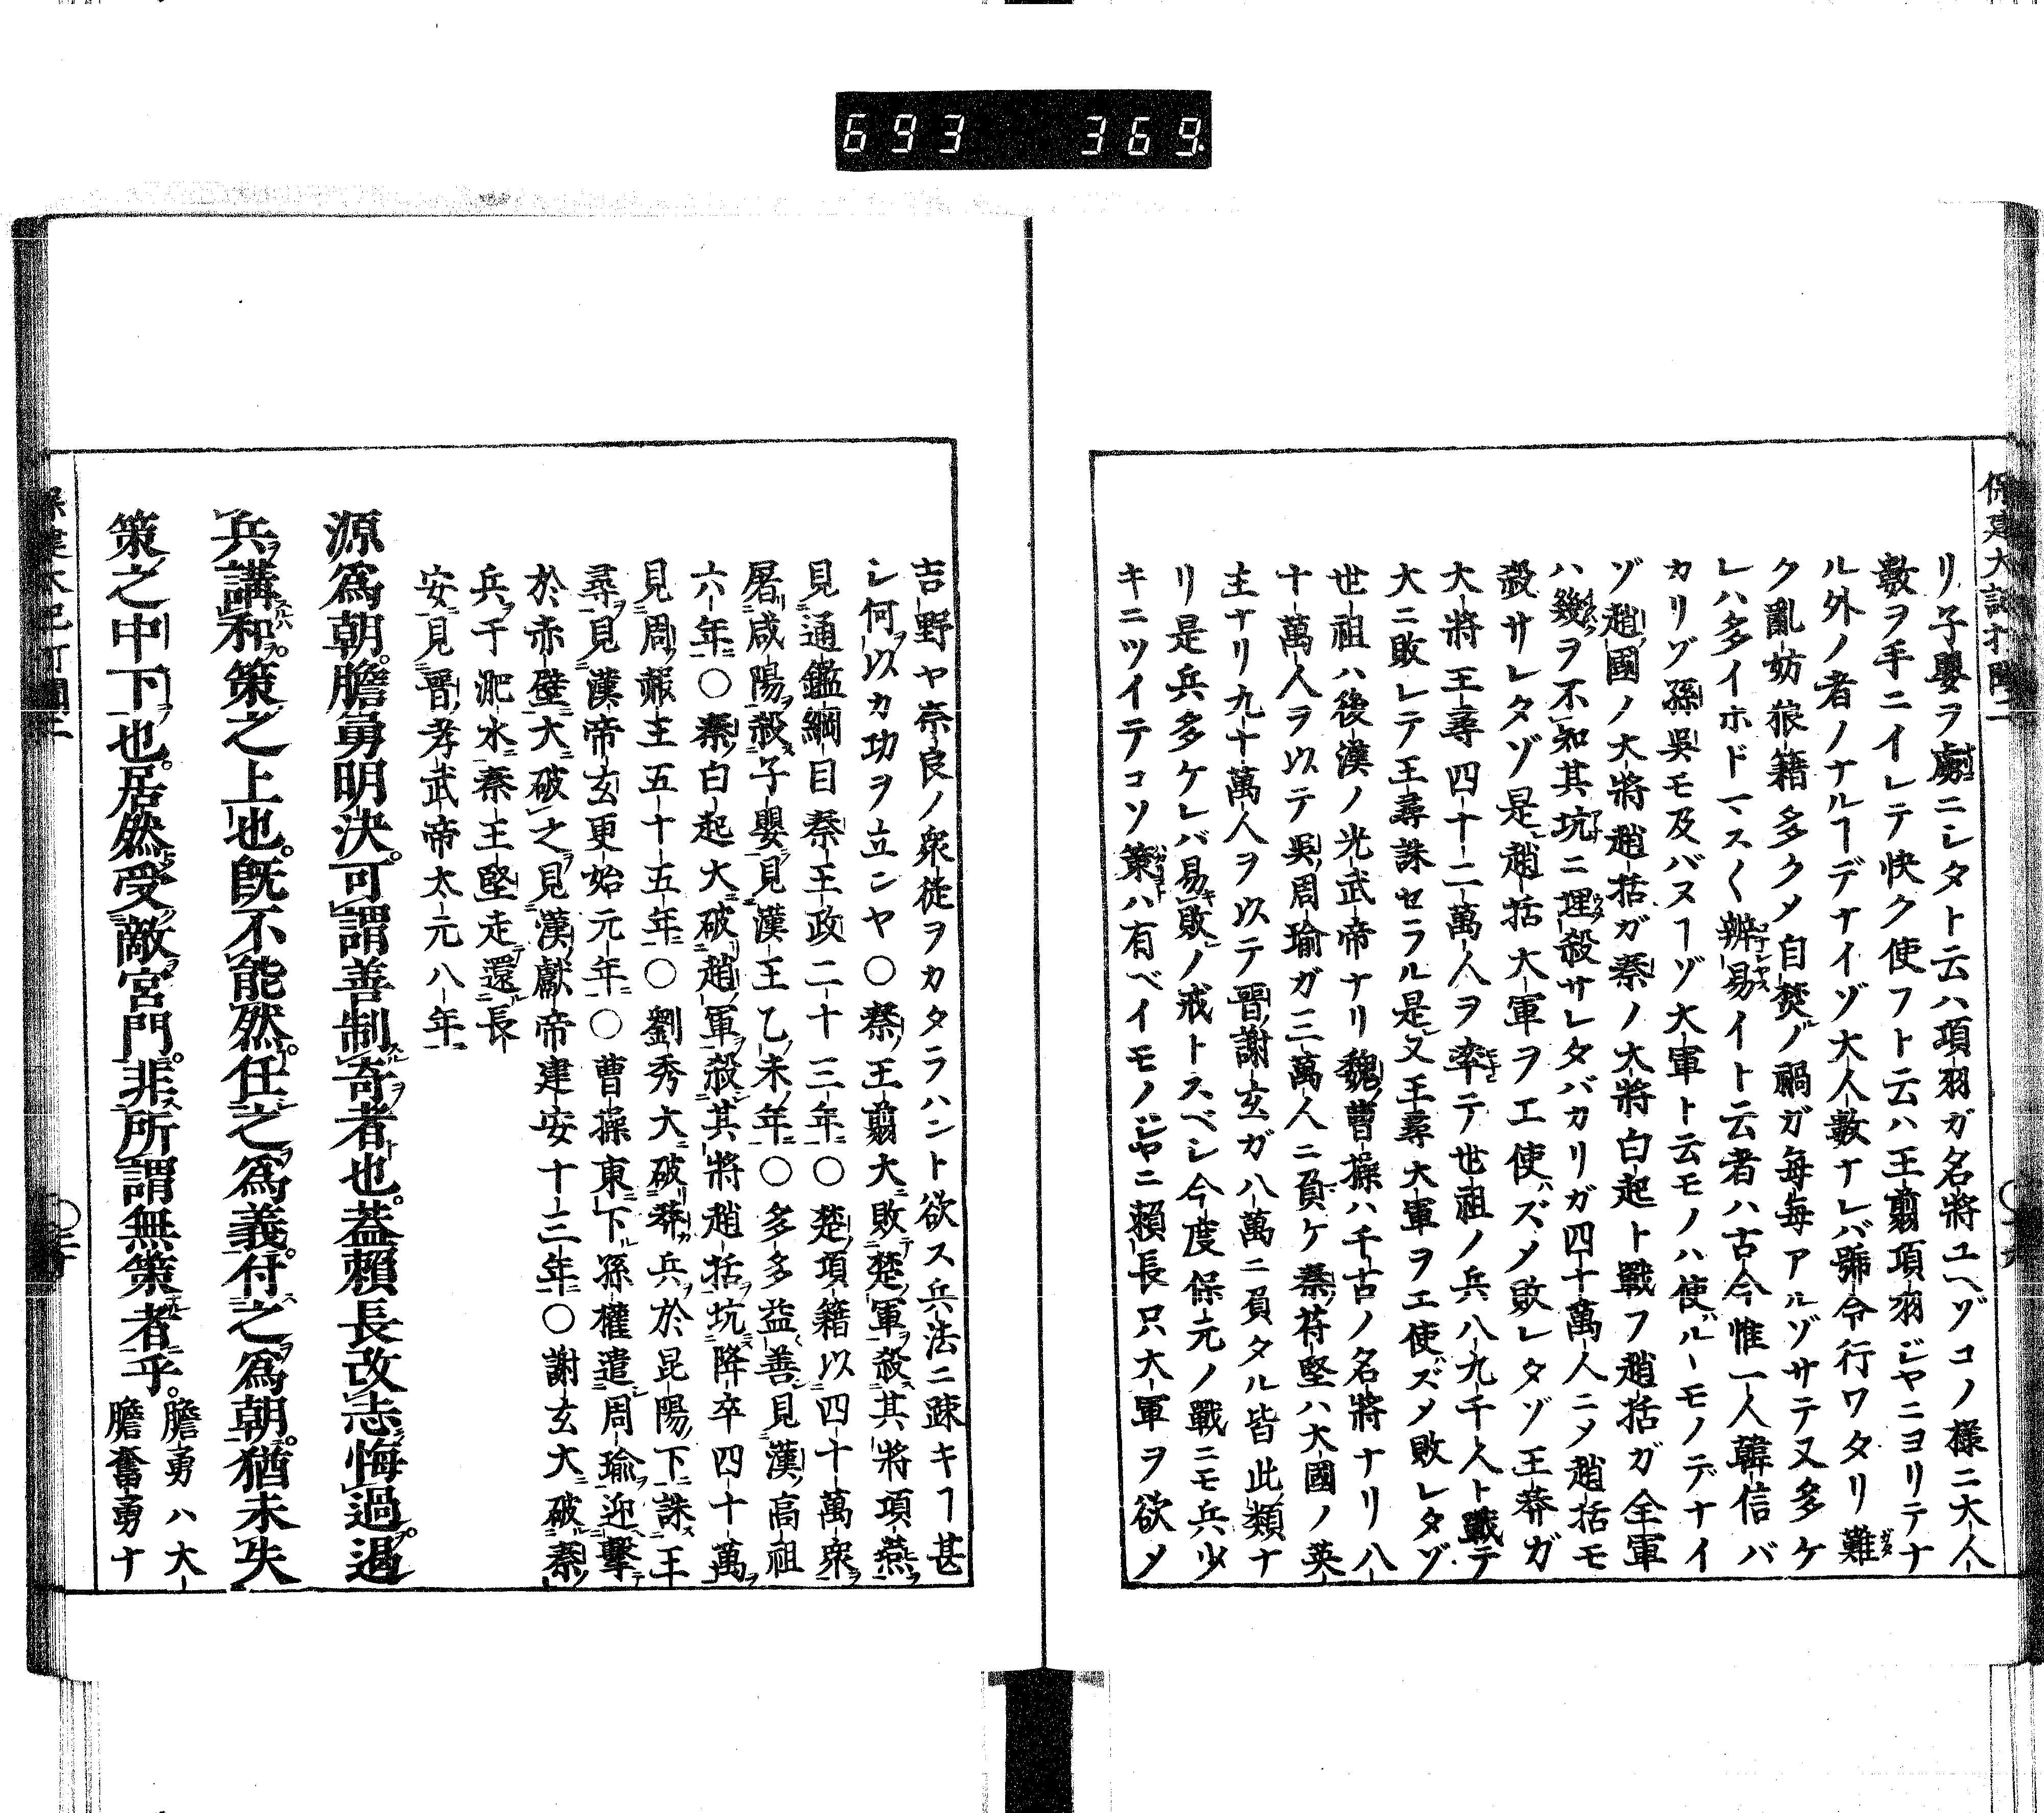 693 369
保建大記打聞二
リ子嬰ヲ虜ニシタト云ハ項羽ガ名將ユヘゾコノ樣ニ大人
數ヲ手ニイレテ快ク使フト云ハ王翦項羽ジヤニヨリテナ
ル外ノ者ノナルヿデナイゾ大人數ナレバ號令行ワタリ難
ク亂妨狼籍多クメ自焚ノ禍ガ毎毎アルゾサテ又多ケ
レハ多イホドマスく辨易イト云者ハ古今惟一人韓信バ
カリゾ孫吳モ及バヌヿゾ大軍ト云モノハ使ルヽモノデナイ
ゾ趙國ノ大將趙括ガ秦ノ大將白起ト戰フ趙括ガ全軍
ハ幾ヲ不知其坑ニ埋殺サレタバカリガ四十萬人ニメ趙括モ
殺サレタゾ是趙括大軍ヲエ使ズメ敗レタゾ王莽ガ
大將王尋四十二萬人ヲ率テ世祖ノ兵八九千人ト戰テ
大ニ敗レテ王尋誅セラル是又王尋大軍ヲエ使ズメ敗レタゾ
世祖ハ後漢ノ光武帝ナリ魏曹操ハ千古ノ名將ナリ八
十萬人ヲ以テ吳周瑜ガ三萬人ニ負ケ秦苻堅ハ大國ノ英
主ナリ九十萬人ヲ以テ晉謝玄ガ八萬ニ負タル皆此類ナ
リ是兵多ケレバ易敗ノ戒トスベシ今度保元ノ戰ニモ兵少
キニツイテコソ策ハ有ベイモノジヤニ賴長只大軍ヲ欲メ
吉野ヤ奈良ノ衆徒ヲカタラハント欲ス兵法ニ疎キヿ甚
シ何以カ功ヲ立ンヤ〇秦王翦大敗楚軍殺其將項燕
見通鑑綱目秦王政二十三年〇楚項籍以四十萬衆
屠咸陽殺子嬰見漢王乙未年〇多多益善見漢高祖
六年〇秦白起大破趙軍殺其將趙括坑降卒四十萬
見周赧王五十五年〇劉秀大破莽兵於昆陽下誅王
尋見漢帝玄更始元年〇曹操東下孫權遣周瑜迎擊
於赤壁大破之見漢獻帝建安十三年〇謝玄大破秦
兵于淝水秦王堅走還長
安見晉孝武帝太元八年
源爲朝膽勇明決可謂善制奇者也蓋賴長改志悔過遏
兵講和策之上也旣不能然任之爲義付之爲朝猶未失
策之中下也居然受敵宮門非所謂無策者乎
膽勇ハ大
膽奮勇ナ